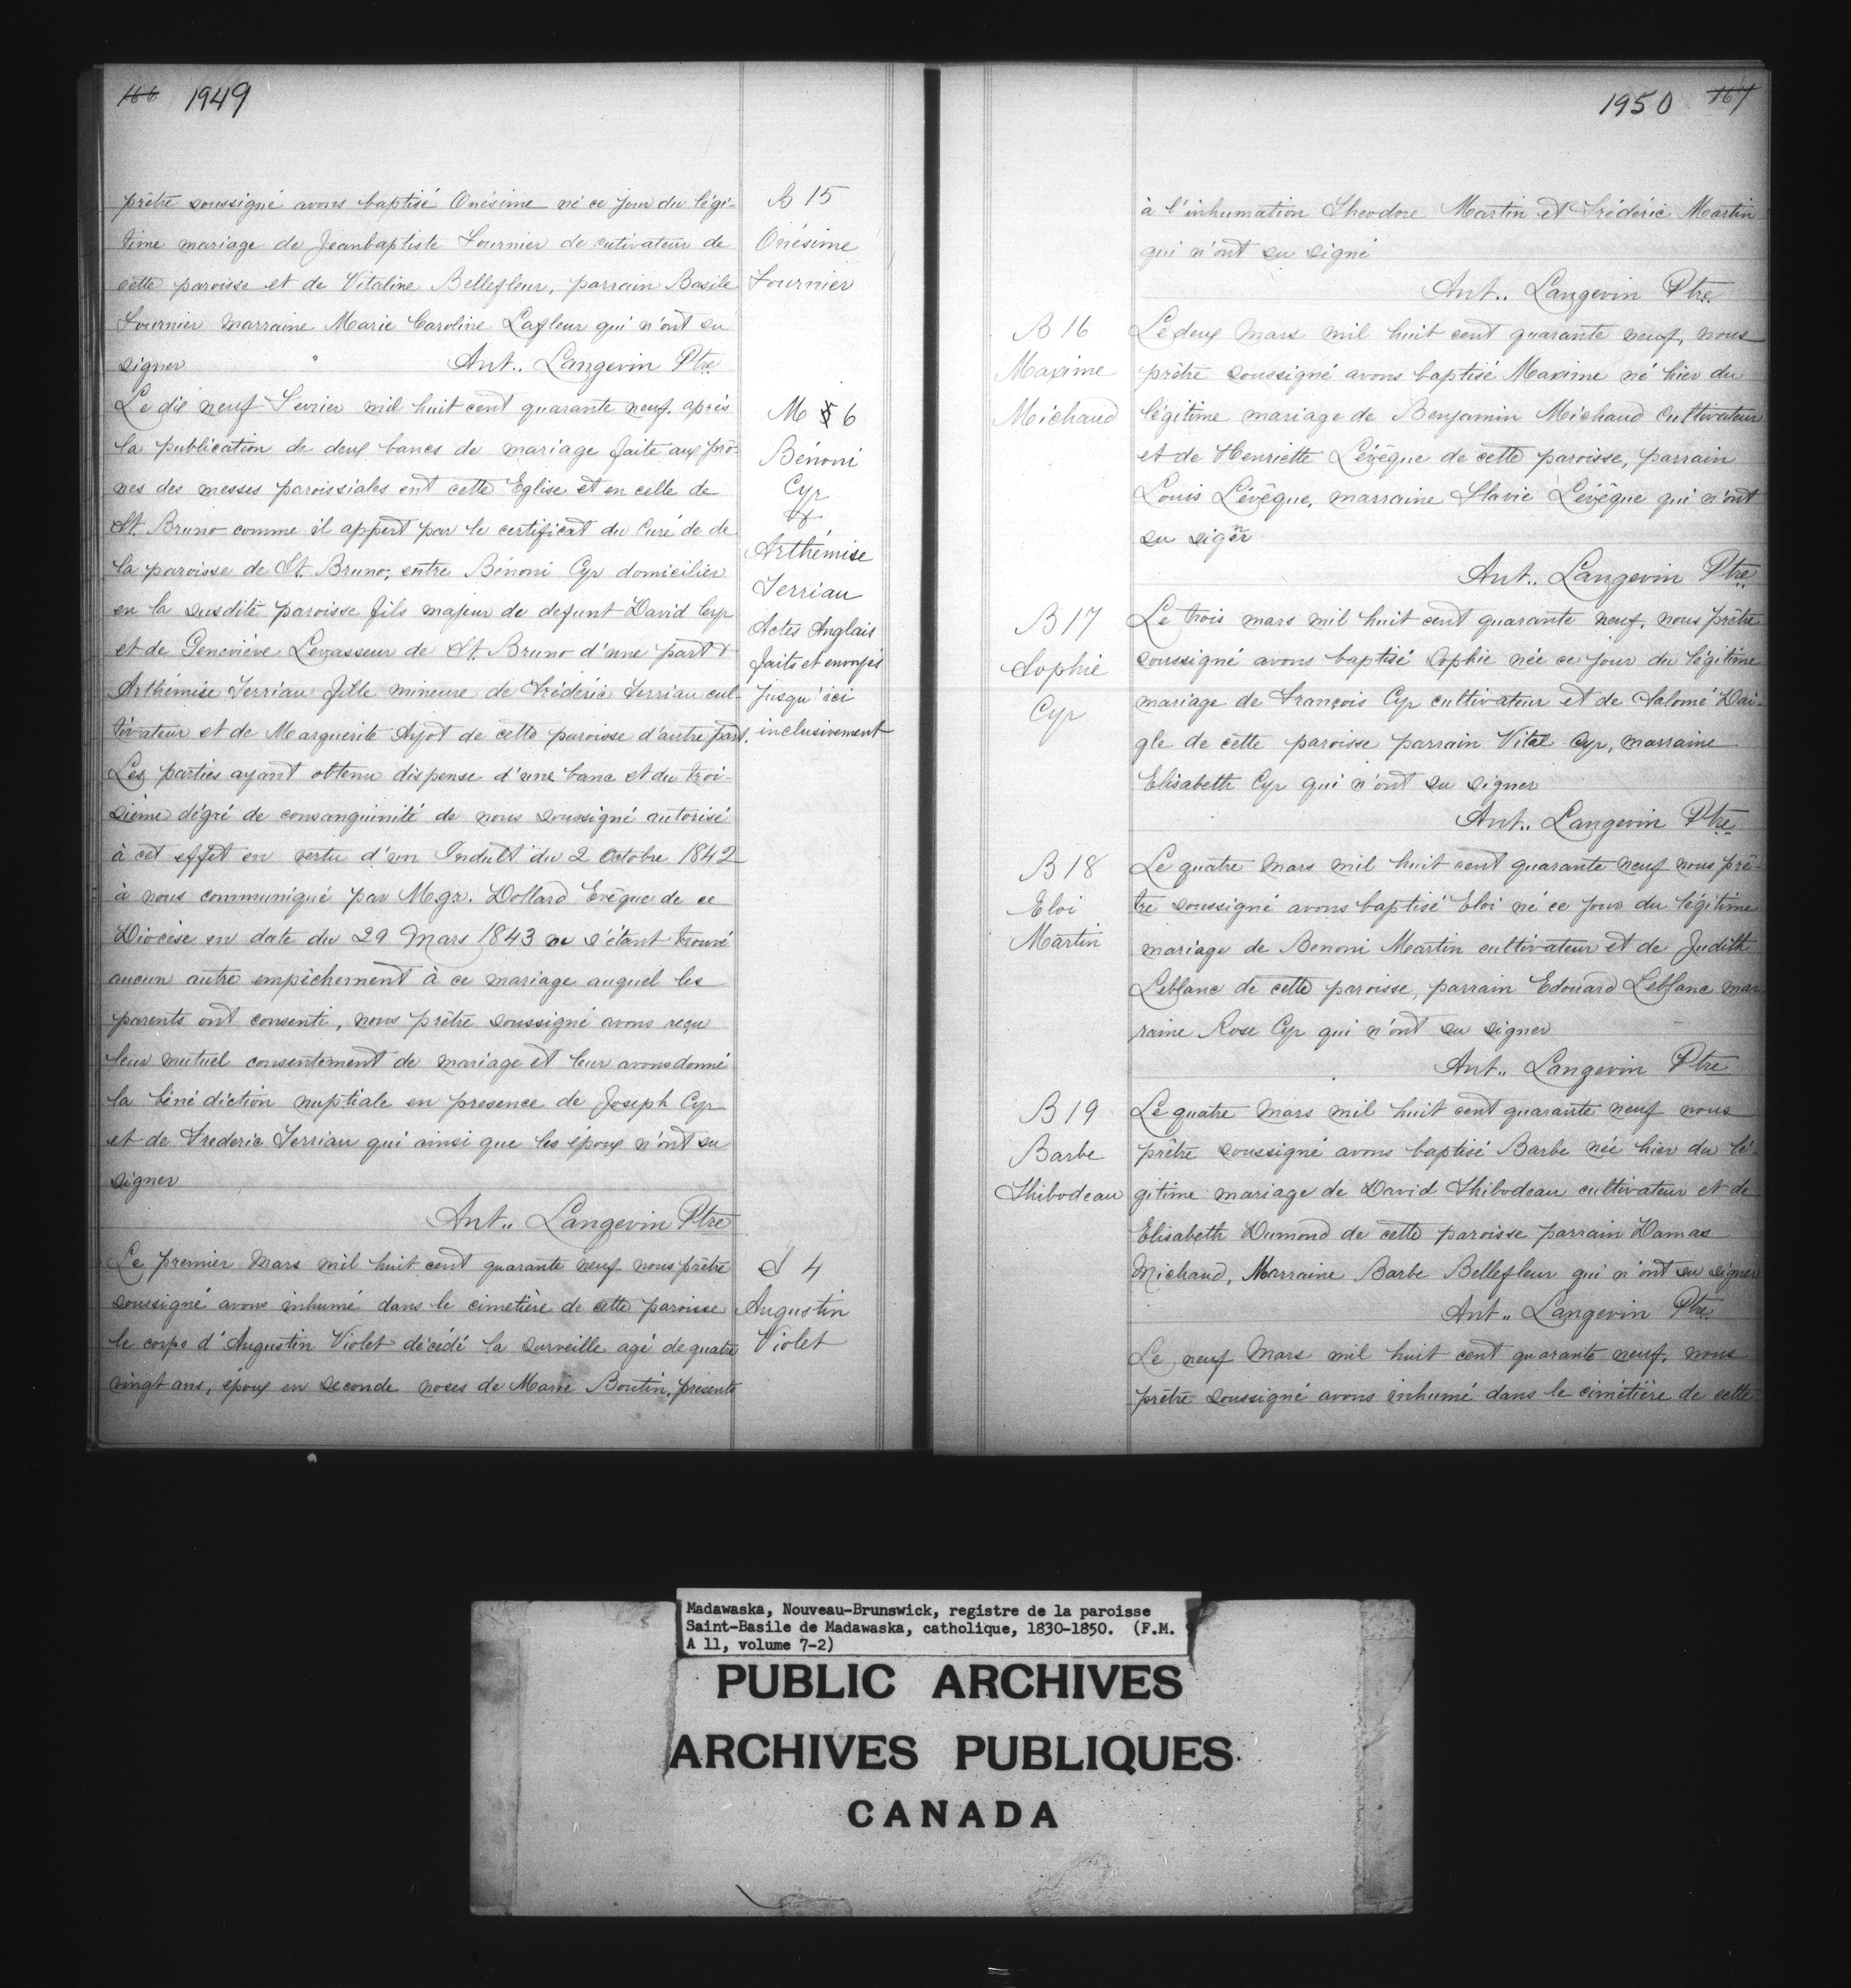 166 1949
prêtre soussigné avons baptisé Onésime né ce jour du légi-
time mariage de Jeanbaptiste Fournier de cutivateur de
cette paroisse et de Vitaline Bellefleur, parrain Basile
Fournier marraine Marie Caroline Lafleur qui n'ont su
signer Ant.. Langevin Ptre
B 15
Onésime
Fournier
Le dix neuf Fevrier mil huit cent quarante neuf, après
la publication de deux bancs de mariage faite aux prô-
nes des messes paroissiales ent cette Eglise et en celle de
St. Bruno comme il appert par le certificat du Curé de de
la paroisse de St. Bruno, entre Bénoni Cyr domicilier
en la susdite paroisse fils majeur de defunt David Cyr
et de Geneviève Levasseur de St. Bruno d'une part &
Arthémise Terriau fille mineure de Fréderic Terriau cul-
tivateur et de Marguerite Ayot de cette paroisse d'autre part.
Les parties ayant obtenu dispense d'une banc et du troi-
sième dégré de consanguinité de nous soussigné autorisé
à cet effet en vertu d'un Indult du 2 Octobre 1842
à nous communiqué par Mgr. Dollard Evêque de ce
Diocèse en date du 29 Mars 1843 ne s'étant trouvé
aucun autre empêchement à ce mariage auquel les
parents ont consenti, nous prêtre soussigné avons reçu
leur mutuel consentement de mariage et leur avons donné
la bénédiction nuptiale en presence de Joseph Cyr
et de Frederic Terriau qui ainsi que les époux n'ont su
signer
Ant.. Langevin Ptre
M 5 6
Bénoni
Cyr
&
Arthémise
Terriau
Actes Anglais
faits et envoyés
jusqu'ici
inclusivement
Le premier Mars mil huit cent quarante neuf nous prêtre
soussigné avons inhumé dans le cimetière de cette paroisse
le corps d'Augustin Violet décédé la surveille agé de quatre
vingt ans, époux en seconde noces de Marie Boutin, présents
S 4
Augustin
Violet
1950 167
à l'inhumation Theodore Martin et Fréderic Martin
qui n'ont su signé
Ant.. Langevin Ptre
B 16
Maxime
Michaud
Le deux Mars mil huit cent quarante neuf, nous
prêtre soussigné avons baptisé Maxime né hier du
légitime mariage de Benjamin Michaud Cultivateur
et de Henriette Lévêque de cette paroisse, parrain
Louis Lévêque, marraine Flavie Lévêque qui n'ont
su signer
Ant.. Langevin Ptre
B 17
Sophie
Cyr
Le trois mars mil huit cent quarante neuf, nous prêtre
soussigné avons baptisé Sophie née ce jour du légitime
mariage de François Cyr cultivateur et de Salomé Dai-
gle de cette paroisse parrain Vital Cyr, marraine
Elisabeth Cyr qui n'ont su signer
Ant.. Langevin Ptre
B 18
Eloi
Martin
Le quatre Mars mil huit cent quarante neuf nous prê-
tre soussigné avons baptisé Eloi né ce jour du légitime
mariage de Benoni Martin cultivateur et de Judith
Leblanc de cette paroisse, parrain Edouard Leblanc mar
raine Rose Cyr qui n'ont su signer
Ant.. Langevin Ptre
B 19
Barbe
Thibodeau
Le quatre Mars mil huit cent quarante neuf nous
prêtre soussigné avons baptisé Barbe née hier du lé-
gitime mariage de David Thibodeau cultivateur et de
Elisabeth Dumond de cette paroisse parrain Damas
Michaud, Marraine Barbe Bellefleur qui n'ont su signer
Ant.. Langevin Ptre
Le neuf Mars mil huit cent quarante neuf, nous
prêtre soussigné avons inhumé dans le cimetière de cette
Madawaska, Nouveau-Brunswick, registre de la paroisse
Saint-Basile de Madawaska, catholique, 1830-1850. (F.M.
A 11, volume 7-2)
PUBLIC ARCHIVES
ARCHIVES PUBLIQUES
CANADA